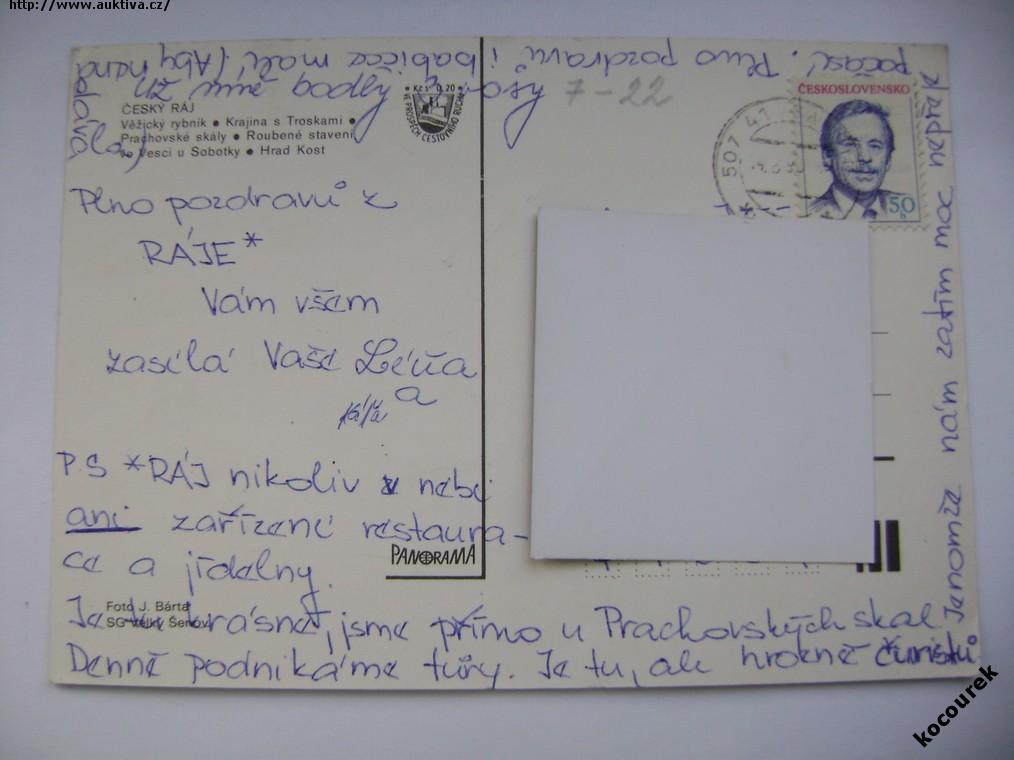 http://www.auktiva.cz/
ČESKÝ RÁJ
Věžický rybník • Krajina s Troskami •
Prachovské skály • Roubené stavení
ve Vesci u Sobotky • Hrad Kost
Kčs 0,20
VE PROSPĚCH CESTOVNÍHO RUCHU
7-22
507 41
ČESKOSLOVENSKO
50
h
Plno pozdravů z
RÁJE*
Vám všem
zasílá Vaše Léňa
a
P.S *RÁJ nikoliv v nebi
ani zařízení restaura-
ce a jídelny.
PANORAMA
Foto J. Bárta
SG Velký Šenov
Je tu krásně, jsme přímo u Prachovských skal.
Denně podnikáme túry. Je tu, ale hrozně turistů
Jenomže nám zatím moc nepřeje
počasí. Plno pozdravů i babičce malí, (Aby
kocourek